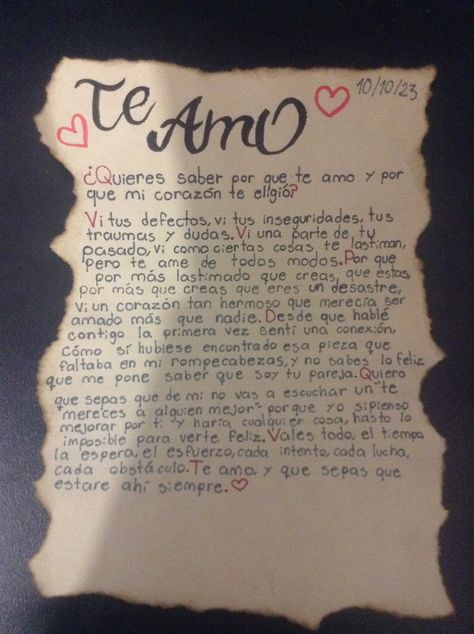 Te
Amo
10/10/23
¿Quieres saber por que te amo y por
que mi corazón te eligió?
Vi tus defectos, vi tus inseguridades, tus
traumas y dudas. Vi una parte de tu
pasado, vi como ciertas cosas, te lastiman,
pero te ame de todos modos. Por que
por más lastimado que creas, que estas,
por más que creas que eres un desastre,
vi un corazón tan hermoso que merecía ser
amado más que nadie. Desde que hablé
contigo la primera vez sentí una conexión,
Cómo sí hubiese encontrado esa pieza que
faltaba en mi rompecabezas, y no sabes lo feliz
que me pone saber que soy tu pareja. Quiero
que sepas que de mí no vas a escuchar un "te
mereces a alguien mejor" porque yo si pienso
mejorar por ti. Y haría cualquier cosa, hasta lo
imposible para verte feliz. Vales todo, el tiempo
la espera, el esfuerzo, cada intento, cada lucha,
cada obstáculo. Te amo, y que sepas que
estare ahí siempre.